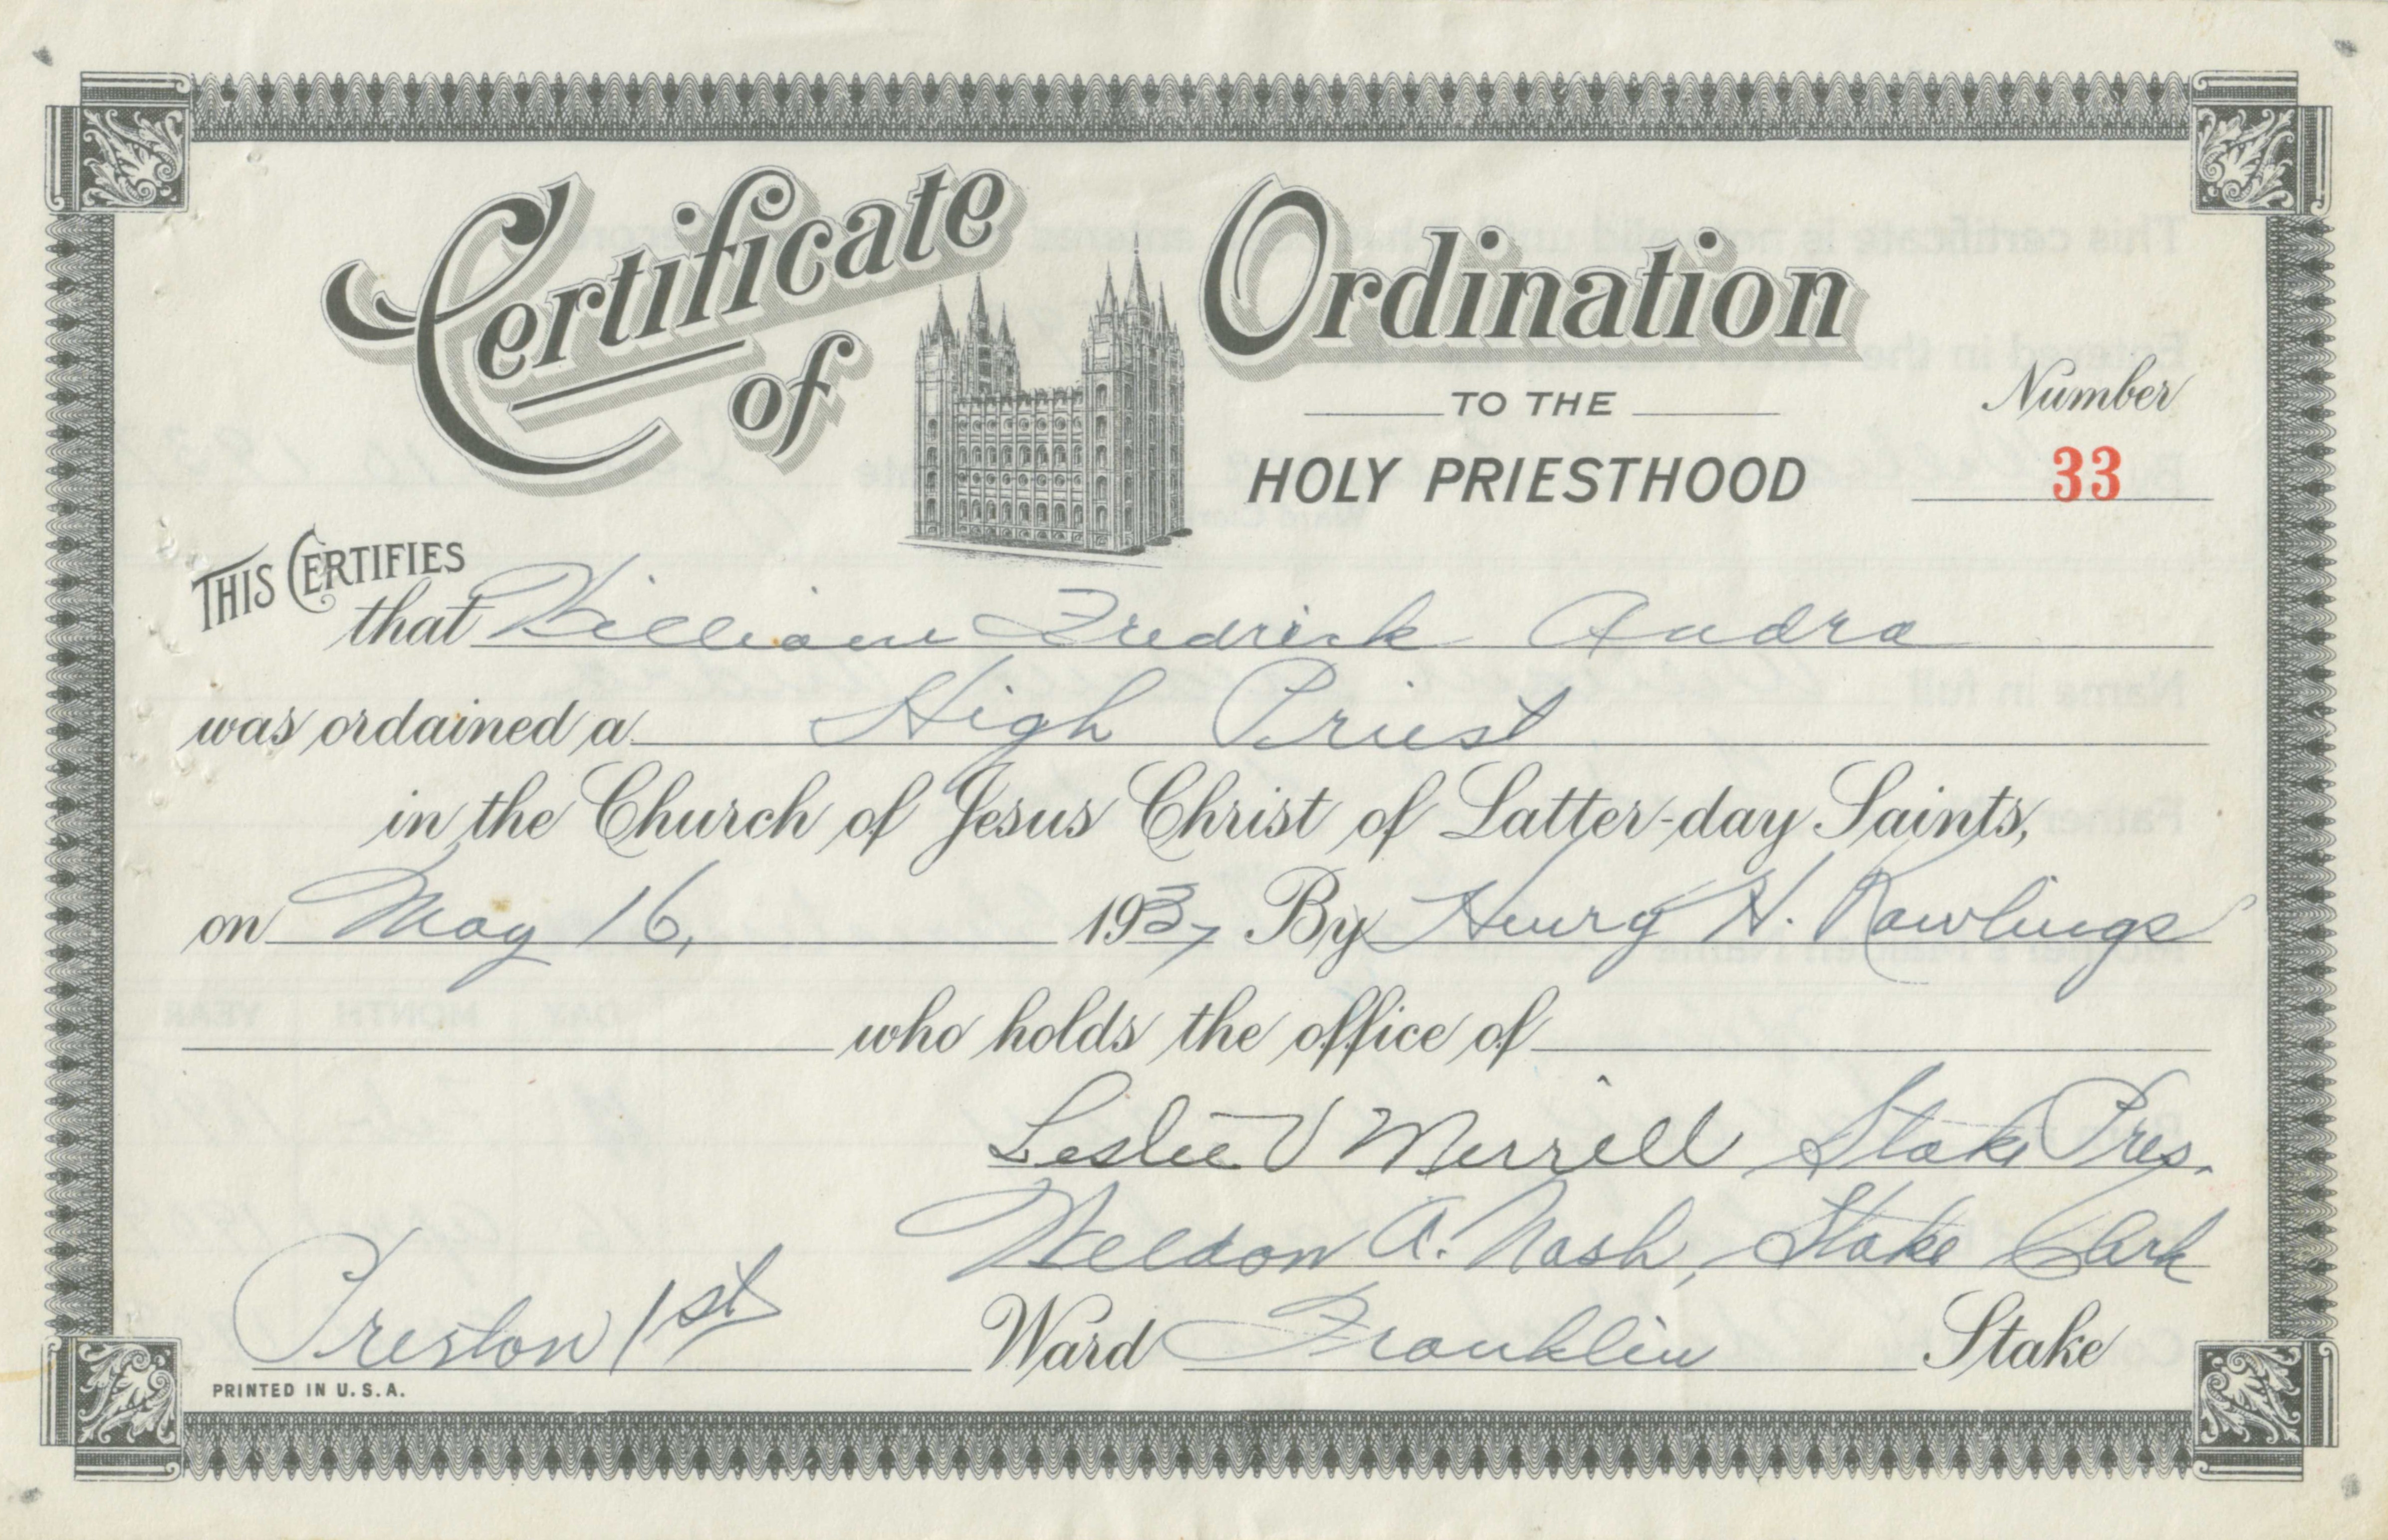 Certificate of Ordination
TO THE
HOLY PRIESTHOOD
Number
33
THIS CERTIFIES
that William Fredrick Andra
was ordained a High Priest
in the Church of Jesus Christ of Latter-day Saints,
on May 16, 1937 By Henry H. Rawlings
who holds the office of
Leslie V Merrill Stake Pres.
Weldon A. Nash, Stake Clerk
Preston 1st Ward Franklin Stake
PRINTED IN U.S.A.